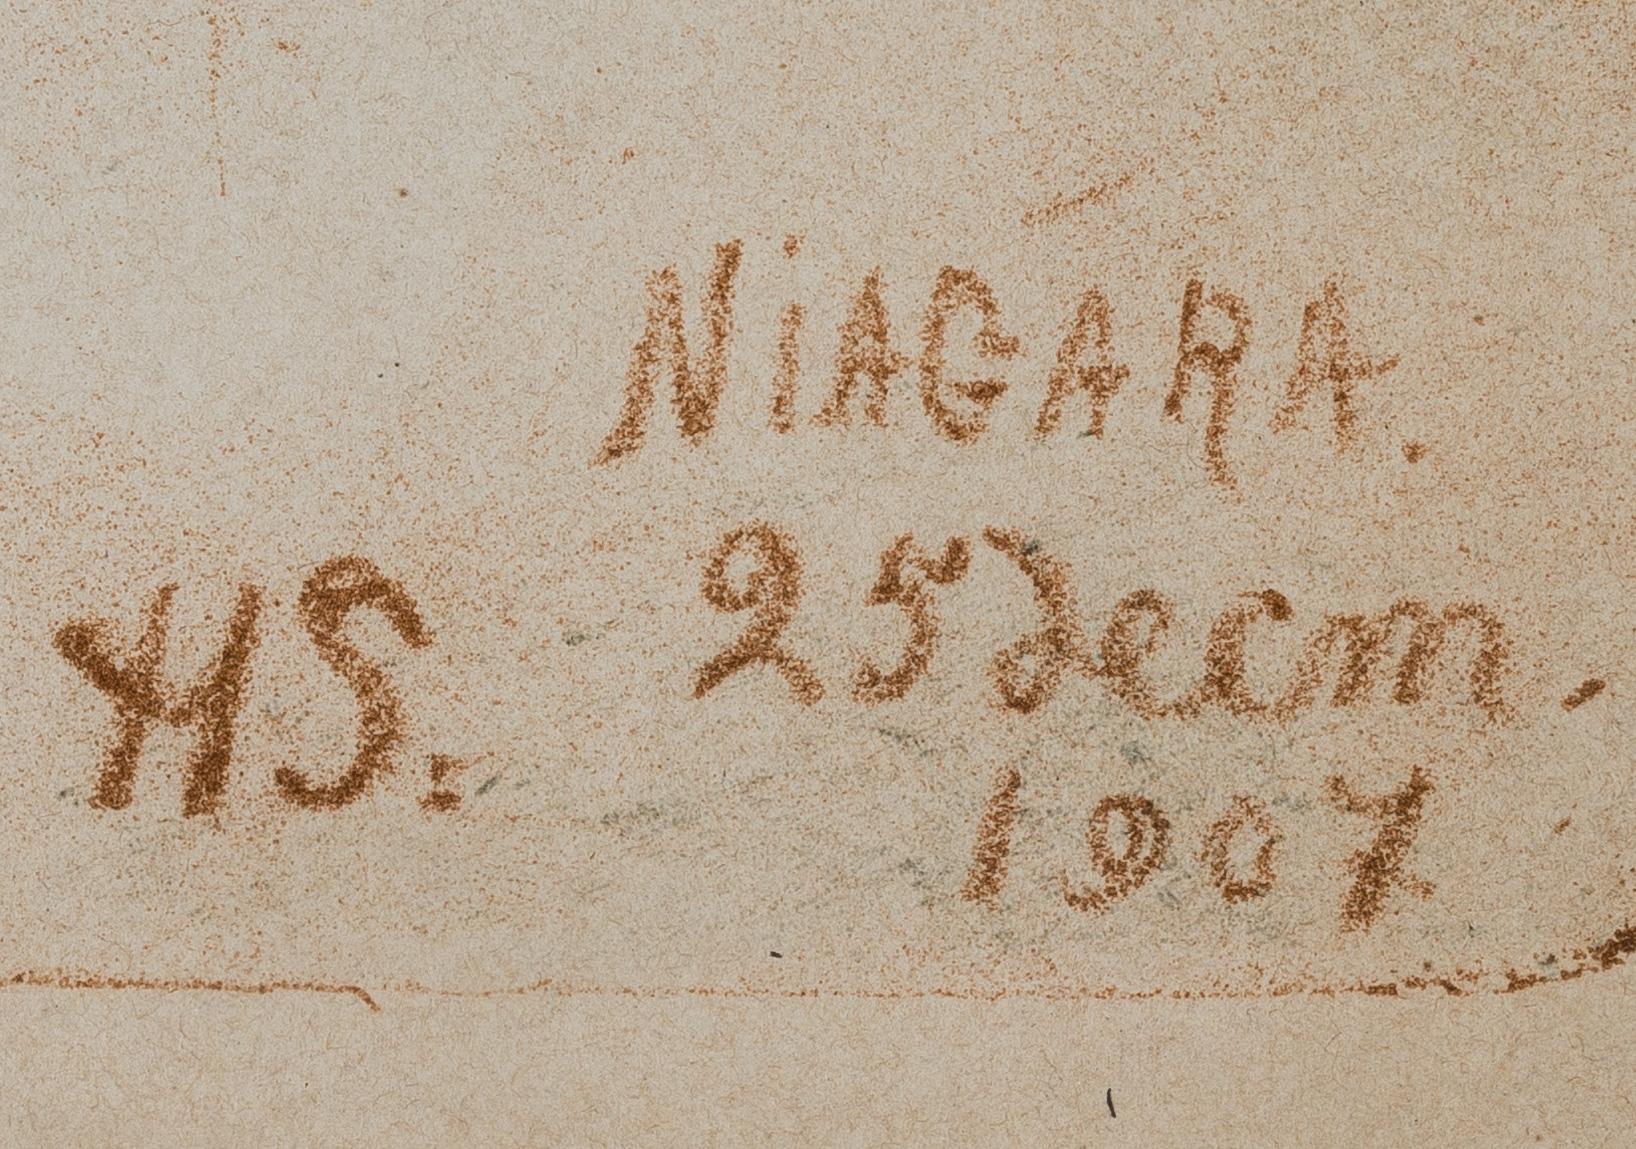 NiAGARA.
HS. 25 Decm.
1907